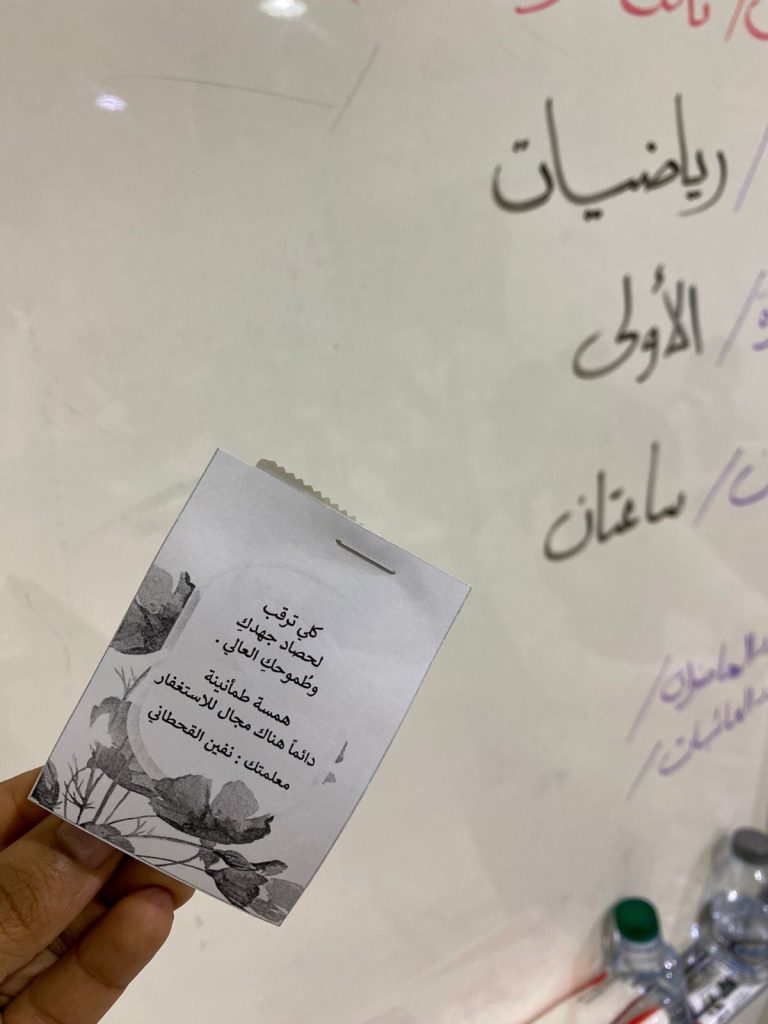 رياضيات /
الأولى /
ساعتان /
كلي ترقب
لحصاد جهدكِ
وطُموحكِ العالي .
همسة طمأنينة
دائماً هناك مجال للاستغفار
معلمتك : نفين القحطاني